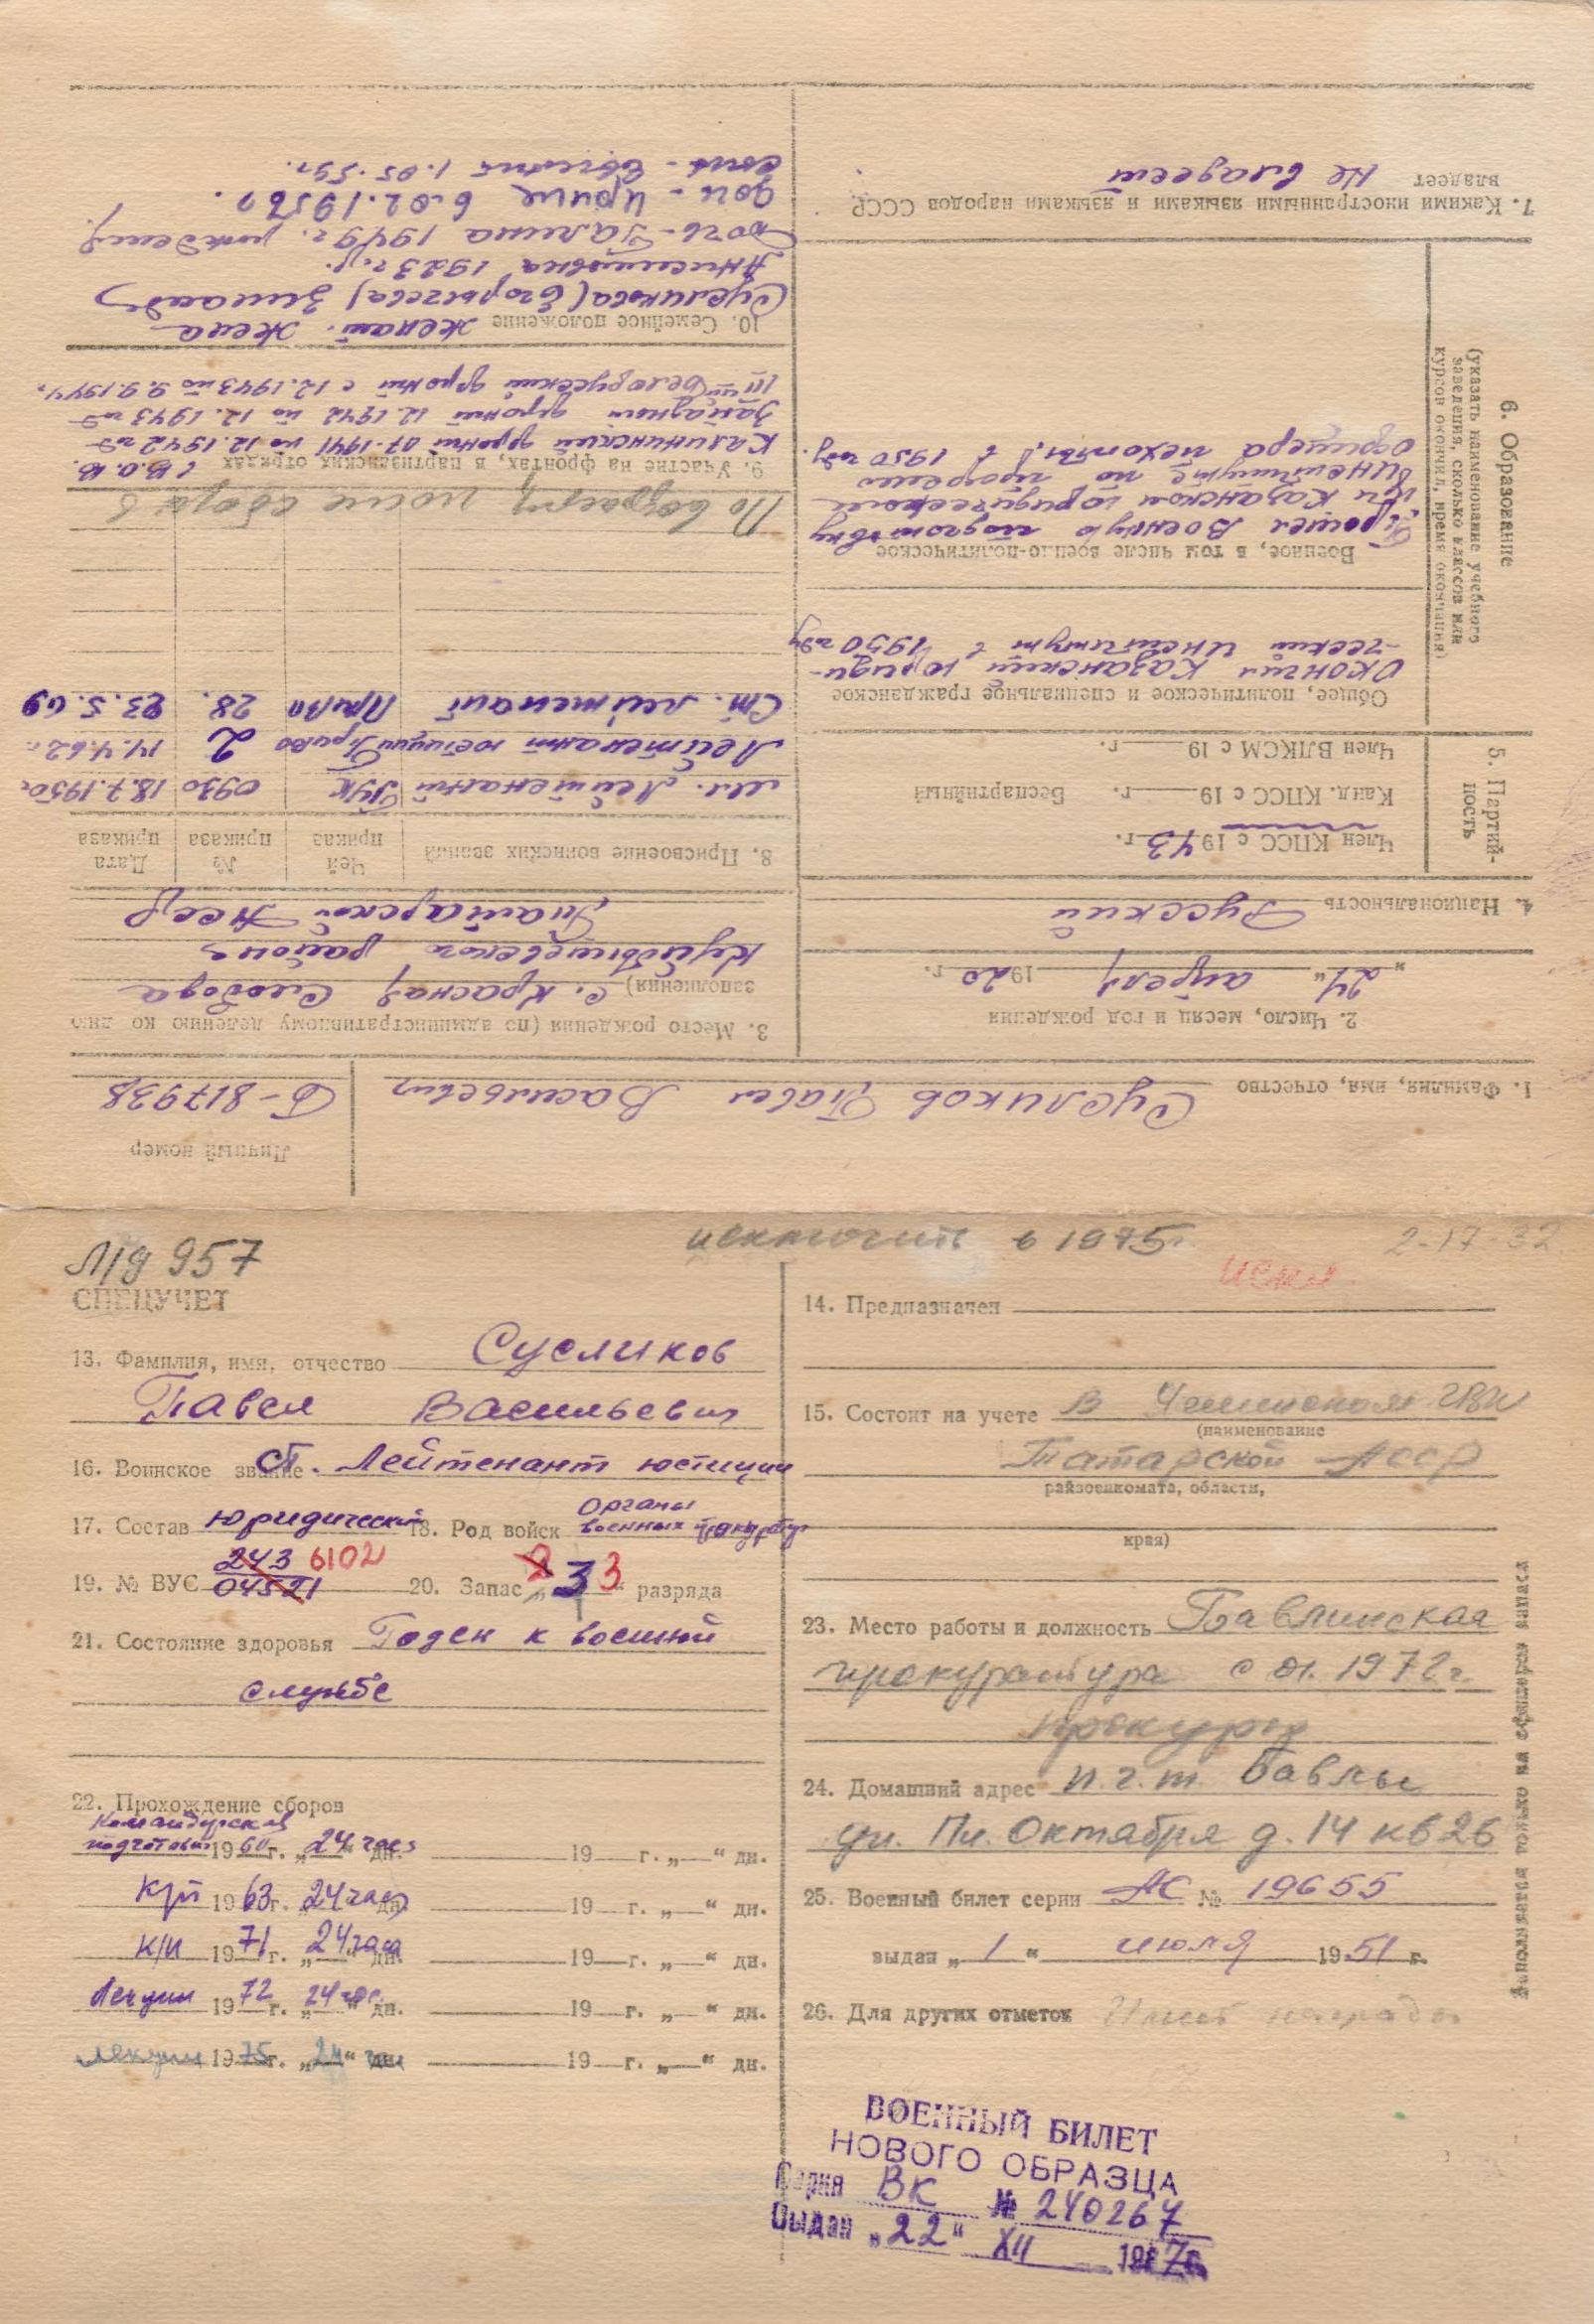 Личный номер
1. Фамилия, имя, отчество Сусликов Павел Васильевич Б-817938
2. Число, месяц и год рождения
„24“ апреля 1920 г.
4. Национальность Русский
5. Партийность
Член КПСС с 1943 г.
Канд. КПСС с 19 г. Беспартийный
Член ВЛКСМ с 19 г.
6. Образование
(указать наименование учебного
заведения, сколько классов или
курсов окончил, время окончания)
Общее, политическое и специальное гражданское
Окончил Казанский юриди-
-ческий институт в 1950 году
Военное, в том числе военно-политическое
Прошел военную подготовку
при Казанском юридическом
институте по програме
офицера пехоты в 1950 году.
7. Какими иностранными языками и языками народов СССР
владеет Не владеет
3. Место рождения (по административному делению ко дню
заполнения) с. Красная Слобода
Куйбышевского района
Татарской АССР
8. Присвоение воинских званий
Чей приказ
№ приказа
Дата приказа
мл. Лейтенант ГУК 0930 18.7.1950г
Лейтенант юстиции Приво 2 14.4.62г.
Ст. лейтенант Приво 28. 23.5.69
По возрасту после сбора
9. Участие на фронтах, в партизанских отрядах в В.О.В.
Калининский фронт 07.1941 по 12.1942 год
Западный фронт 12.1942 по 12.1943 год
III ий Белорусский фронт с 12.1943 по 9.9.1944г.
10. Семейное положение женат. жена
Сусликова (Егорычева) Зинаида
Анисимовна 1923 г.р.
Дочь-Галина 1949г. рождения
доч - Ирина 6.02.1956г.
сын - Евгений 1.05.59г.
М/д 957
исключить в 1975г.
2-17-32
СПЕЦУЧЕТ
13. Фамилия, имя, отчество Сусликов
Павел Васильевич
16. Воинское звание ст. Лейтенант юстиции
17. Состав юридический 18. Род войск органы военных прокуратур
19. № ВУС 243 6102
04521
20. Запас „ 2 3 3 “ разряда
21. Состояние здоровья Годен к военной
службе
22. Прохождение сборов
Командирская
подготовка 1960 г. „24 час“ дн. 19 г. „ “ дн.
К/п 1963 г. 24 час дн. 19 г. „ “ дн.
К/п 1971 г. „24 часа“ дн. 19 г. „ “ дн.
Лекции 1972 г. 24 час. дн. 19 г. „ “ дн.
лекции 1975 г. „24“ час дн. 19 г. „ “ дн.
искл.
14. Предназначен
15. Состоит на учете В РВК
(наименование
Татарской АССР
райвоенкомата, области,
края)
23. Место работы и должность Бавлинская
прокуратура с 01.1972г.
прокурор
24. Домашний адрес п.г.т. Бавлы
ул. Пл. Октября д. 14 кв 26
25. Военный билет серии АС № 19655
выдан „1“ июля 1951 г.
26. Для других отметок Имеет награды
Заполняется только на офицеров запаса
ВОЕННЫЙ БИЛЕТ
НОВОГО ОБРАЗЦА
Серия ВК № 240267
Выдан „22“ XII